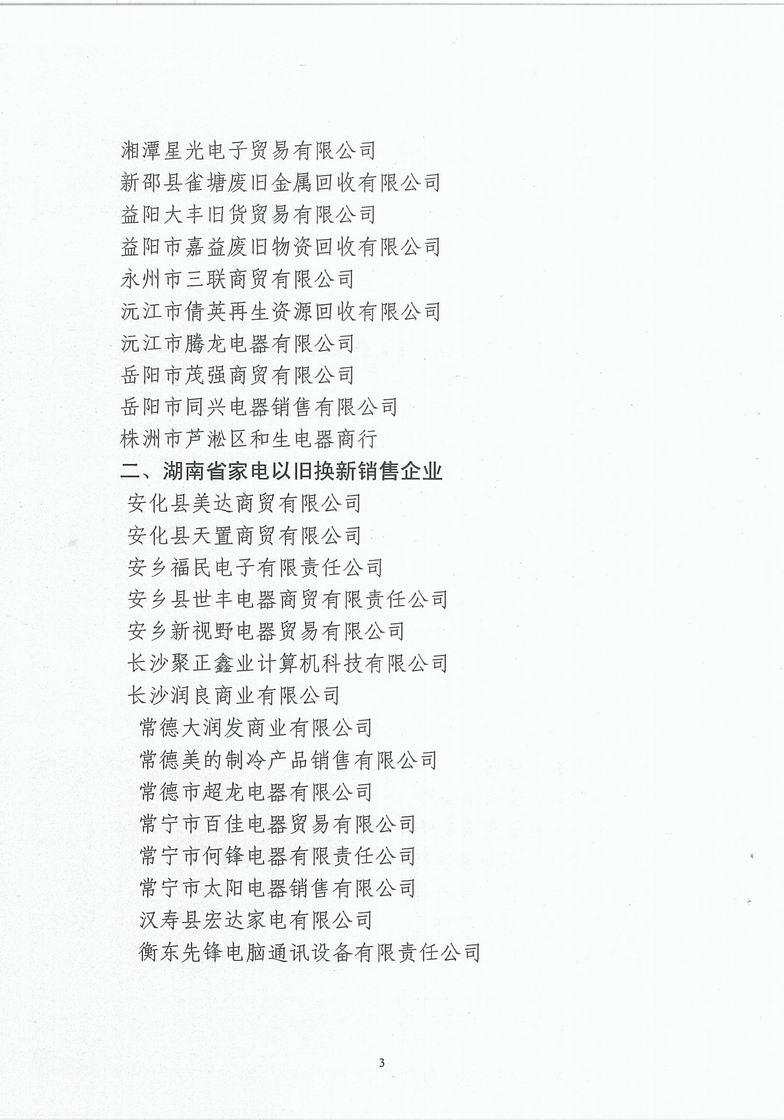 湘潭星光电子贸易有限公司
新邵县雀塘废旧金属回收有限公司
益阳大丰旧货贸易有限公司
益阳市嘉益废旧物资回收有限公司
永州市三联商贸有限公司
沅江市倩英再生资源回收有限公司
沅江市腾龙电器有限公司
岳阳市茂强商贸有限公司
岳阳市同兴电器销售有限公司
株洲市芦淞区和生电器商行
二、湖南省家电以旧换新销售企业
安化县美达商贸有限公司
安化县天置商贸有限公司
安乡福民电子有限责任公司
安乡县世丰电器商贸有限责任公司
安乡新视野电器贸易有限公司
长沙聚正鑫业计算机科技有限公司
长沙润良商业有限公司
常德大润发商业有限公司
常德美的制冷产品销售有限公司
常德市超龙电器有限公司
常宁市百佳电器贸易有限公司
常宁市何锋电器有限责任公司
常宁市太阳电器销售有限公司
汉寿县宏达家电有限公司
衡东先锋电脑通讯设备有限责任公司
3